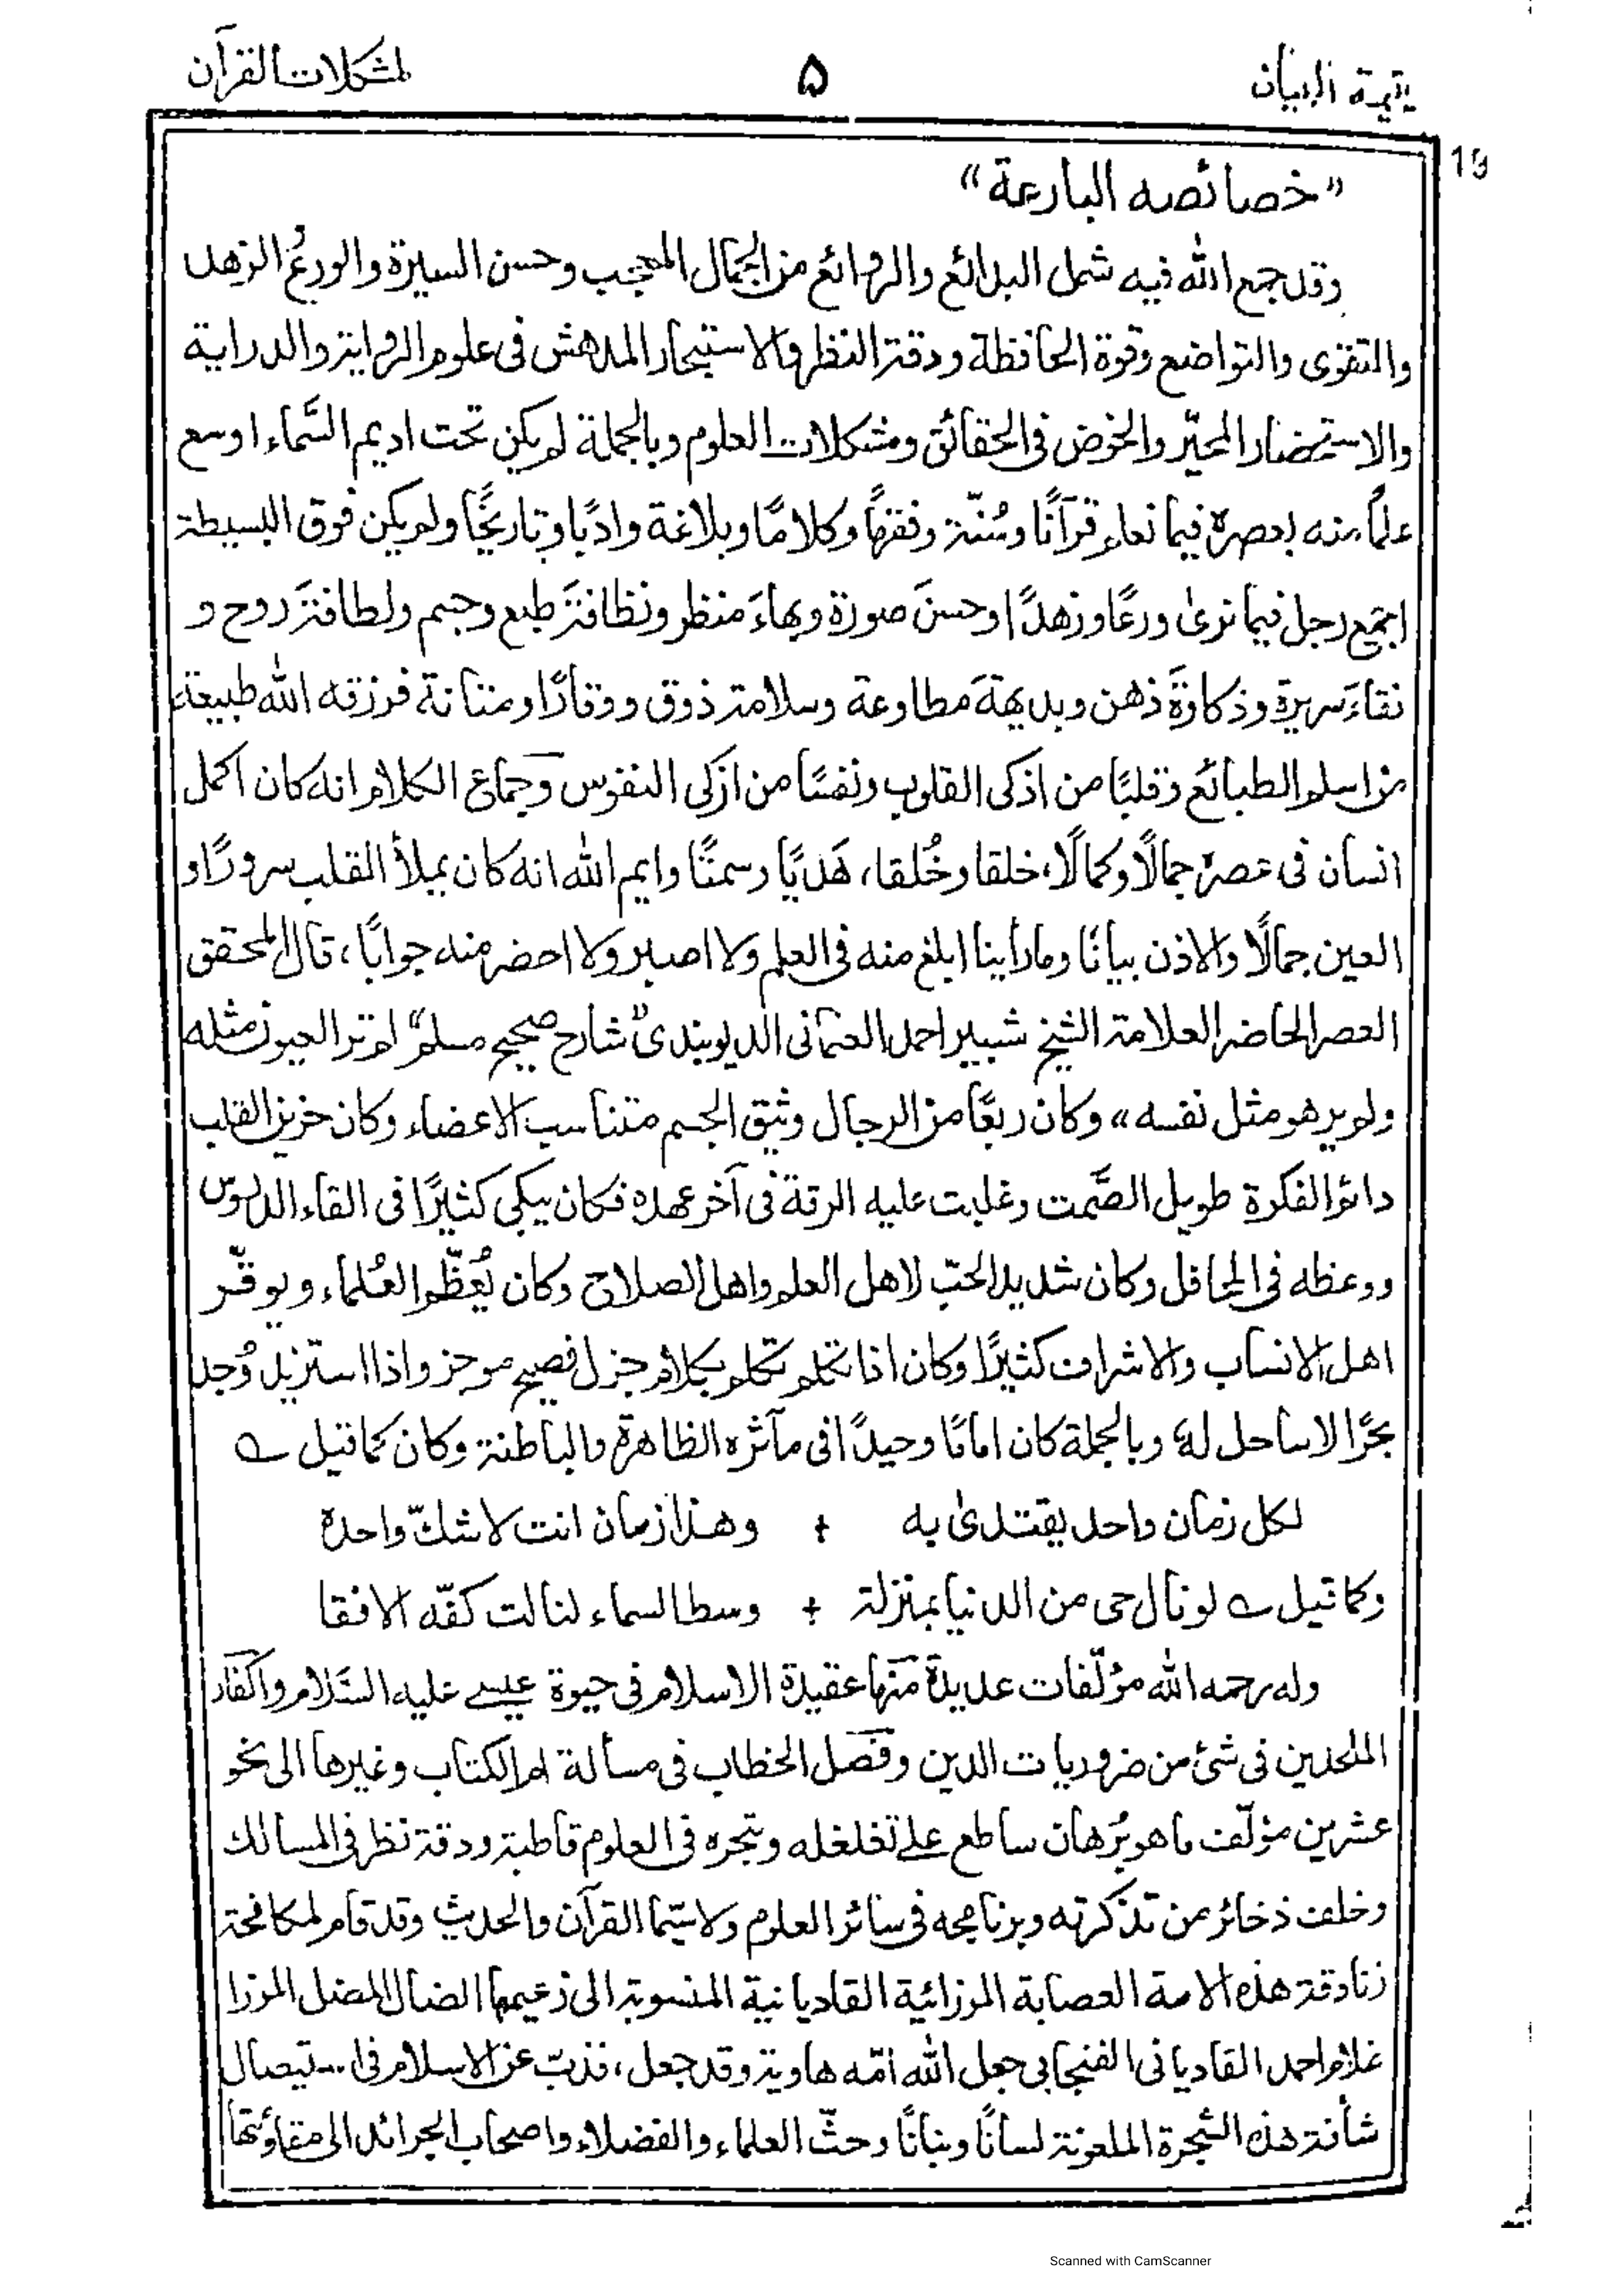 يتيمة البيان ۵ لمشكلات القرآن
19
”خصائصه البارعة“
وقد جمع الله فيه شمل البدائع والروائع من الجمال المعجب وحسن السيرة والورع والزهد
والتقوى والتواضع وقوة الحافظة ودقة النظر والاستبحار المدهش فى علوم الرواية والدراية
والاستحضار المحيّر والخوض فى الحقائق ومشكلات العلوم وبالجملة لم يكن تحت اديم السَّماء اوسع
علمًا منه بعصره فيما نعلم قرآنًا وسُنّة وفقهًا وكلامًا وبلاغة وادبًا وتاريخًا ولم يكن فوق البسيطة
اجمع رجل فيما نرىٰ ورعًا وزهدًا وحسنَ صورة وبهاءَ منظر ونظافةَ طبع وجسم ولطافةَ روح و
نقاءَ سريرة وذكاوةَ ذهن وبديهةَ مطاوعة وسلامة ذوق ووقارًا ومتانة فرزقه الله طبيعة
من اسلم الطبائع وقلبًا من اذكى القلوب ونفسًا من ازكى النفوس وجماع الكلام انه كان اكمل
انسان فى عصره جمالًا وكمالًا، خلقا وخُلقا، هَديًا وسمتًا وايم الله انه كان يملأ القلب سرورًا و
العين جمالًا والاذن بيانًا وما رأينا ابلغ منه فى العلم ولا اصبر ولا احضر منه جوابًا، قال المحقق
العصر الحاضر العلامة الشيخ شبير احمد العثمانى الديوبندىؒ شارح صحيح مسلم ”لم تر العيون مثله
ولم ير هو مثل نفسه“ وكان ربعًا من الرجال وثيق الجسم متناسب الاعضاء وكان حزين القلب
دائم الفكرة طويل الصَّمت وغلبت عليه الرقة فى آخر عهده فكان يبكى كثيرًا فى القاء الدروس
ووعظه فى المحافل وكان شديد الحبّ لاهل العلم واهل الصلاح وكان يُعظّم العُلماء ويوقّر
اهل الانساب والاشراف كثيرًا وكان اذا تكلم تكلم بكلام جزل فصيح موجز واذا استزيد وُجد
بحرًا لا ساحل له وبالجملة كان امامًا وحيدًا فى مآثره الظاهرة والباطنة وكان كما قيل ؎
لكل زمان واحد يقتدىٰ به ؛ وهذا زمان انت لا شكّ واحده
وكما قيل ؎ لو نال حى من الدنيا بمنزلة ؛ وسط السماء لنالت كفّه الافقا
وله رحمه الله مؤلّفات عديدة منها عقيدة الاسلام فى حيوة عيسے عليه السَّلام واكفار
الملحدين فى شئ من ضروريات الدين وفصل الخطاب فى مسألة ام الكتاب وغيرها الى نحو
عشرين مؤلّف ما هو بُرهان ساطع علے تغلغله وتبحره فى العلوم قاطبة ودقة نظر فى المسالك
وخلف ذخائر من تذكرته وبرنامجه فى سائر العلوم ولا سيّما القرآن والحديث وقد قام لمكافحة
زنادقة هذه الامة العصابة المرزائية القاديانية المنسوبة الى زعيمها الضال المضل المرزا
غلام احمد القاديانى الفنجابى جعل الله امّه هاوية وقد جعل، فذبّ عن الاسلام فى استيصال
شأفة هذه الشجرة الملعونة لسانًا وبنانًا وحثّ العلماء والفضلاء واصحاب الجرائد الى مقاومتها
Scanned with CamScanner